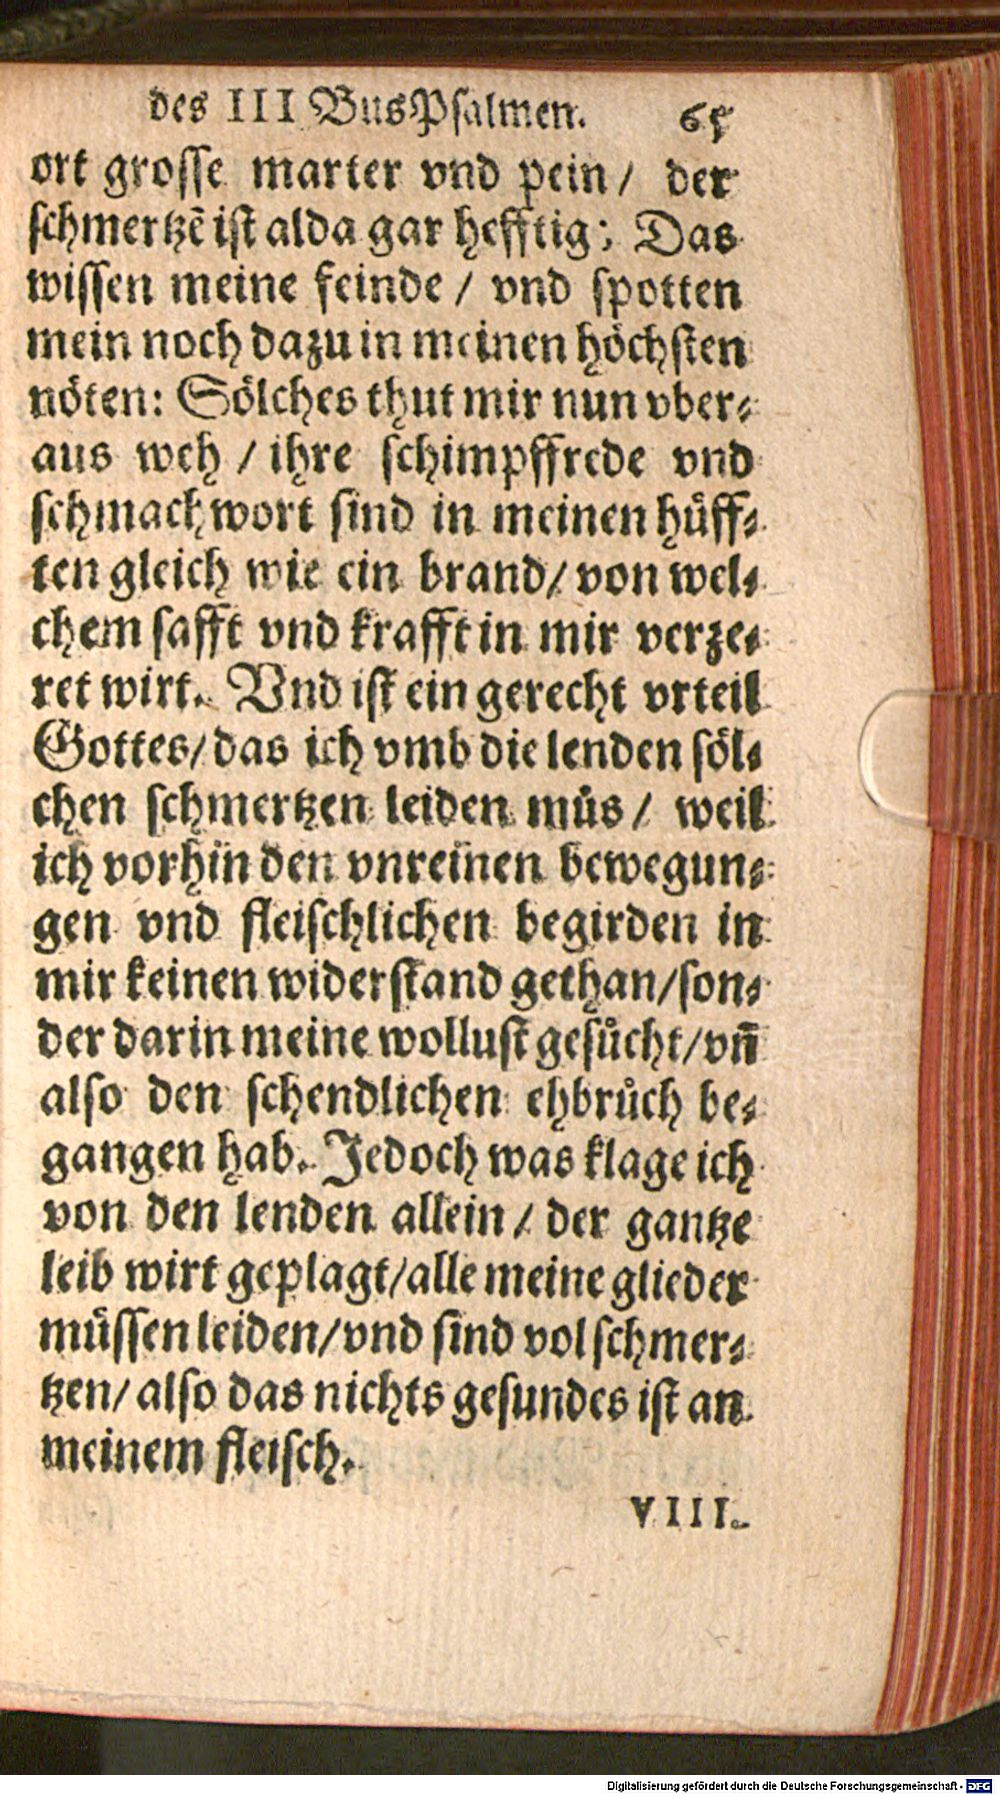 des III BusPsalmen. 65
ort grosse marter vnd pein / der
schmertzẽ ist alda gar hefftig: Das
wissen meine feinde / vnd spotten
mein noch dazu in meinen höchsten
nöten: Sölches thut mir nun vber⸗
aus weh / ihre schimpffrede vnd
schmachwort sind in meinen hüff⸗
ten gleich wie ein brand/ von wel⸗
chem safft vnd krafft in mir verze⸗
ret wirt. Vnd ist ein gerecht vrteil
Gottes/ das ich vmb die lenden söl⸗
chen schmertzen leiden můs / weil
ich vorhin den vnreinen bewegun⸗
gen vnd fleischlichen begirden in
mir keinen widerstand gethan/son⸗
der darin meine wollust gesůcht/vñ
also den schendlichen ehbrůch be⸗
gangen hab. Jedoch was klage ich
von den lenden allein / der gantze
leib wirt geplagt/alle meine glieder
müssen leiden/vnd sind vol schmer⸗
tzen/ also das nichts gesundes ist an
meinem fleisch.
VIII.
Digitalisierung gefördert durch die Deutsche Forschungsgemeinschaft - DFG